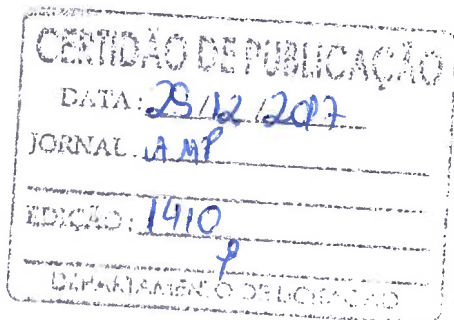 CERTIDÃO DE PUBLICAÇÃO
DATA: 29/12/2017
JORNAL AMP
EDIÇÃO: 1410
DEPARTAMENTO DE